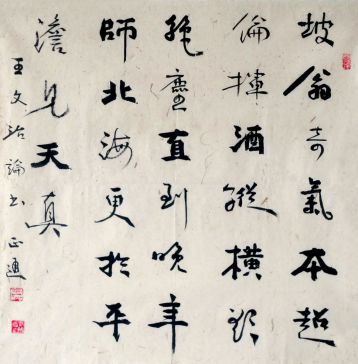 坡翁奇氣本超
倫揮洒縱橫欲
絶塵直到晚年
師北海更於平
澹見天真
王文治論书 正通